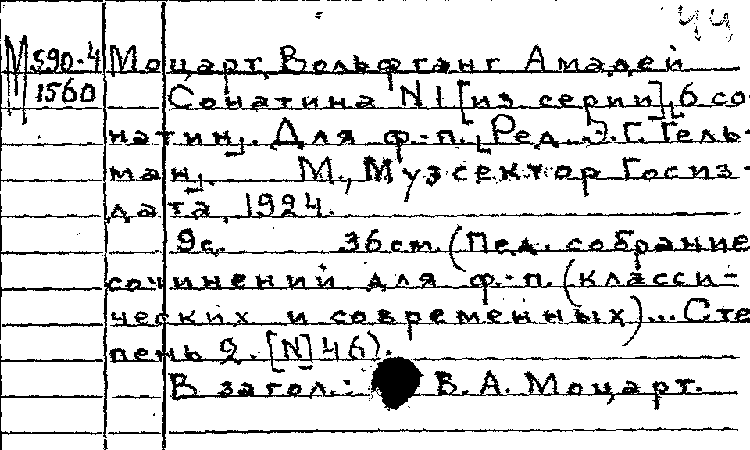 44
М 590-4 Моцарт, Вольфганг Амадей
1560 Сонатина N 1 [из серии], [6 со-
натин]. Для ф.-п. [Ред. Э.Г. Гель-
ман]. М., Музсектор Госиз-
дата, 1924.
9 с. 36 cm. (Пед. собрание
сочинений для ф.-п. (класси-
ческих и современных)... Сте
пень 2. [N] 46).
В загол.: В. А. Моцарт.